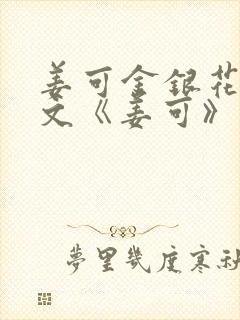 姜可金银花
文《姜可》
夢里幾度寒秋